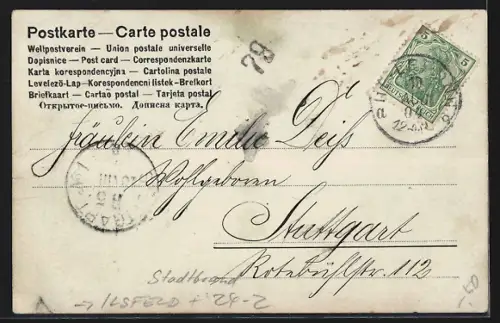 Postkarte — Carte postale
Weltpostverein — Union postale universelle
Dopisnice — Post card — Correspondenzkarte
Karta korespondencyjna — Cartolina postale
Levelező-Lap — Korespondencni listek — Brefkort
Briefkaart — Cartão postal — Tarjeta postal
Открытое-письмо. Дописна карта.
5 5
Fräulein Emilie Deiß
Wohlgeboren
Stuttgart
Rotebühlstr. 112
Stadtbrand
→ ILSFELD